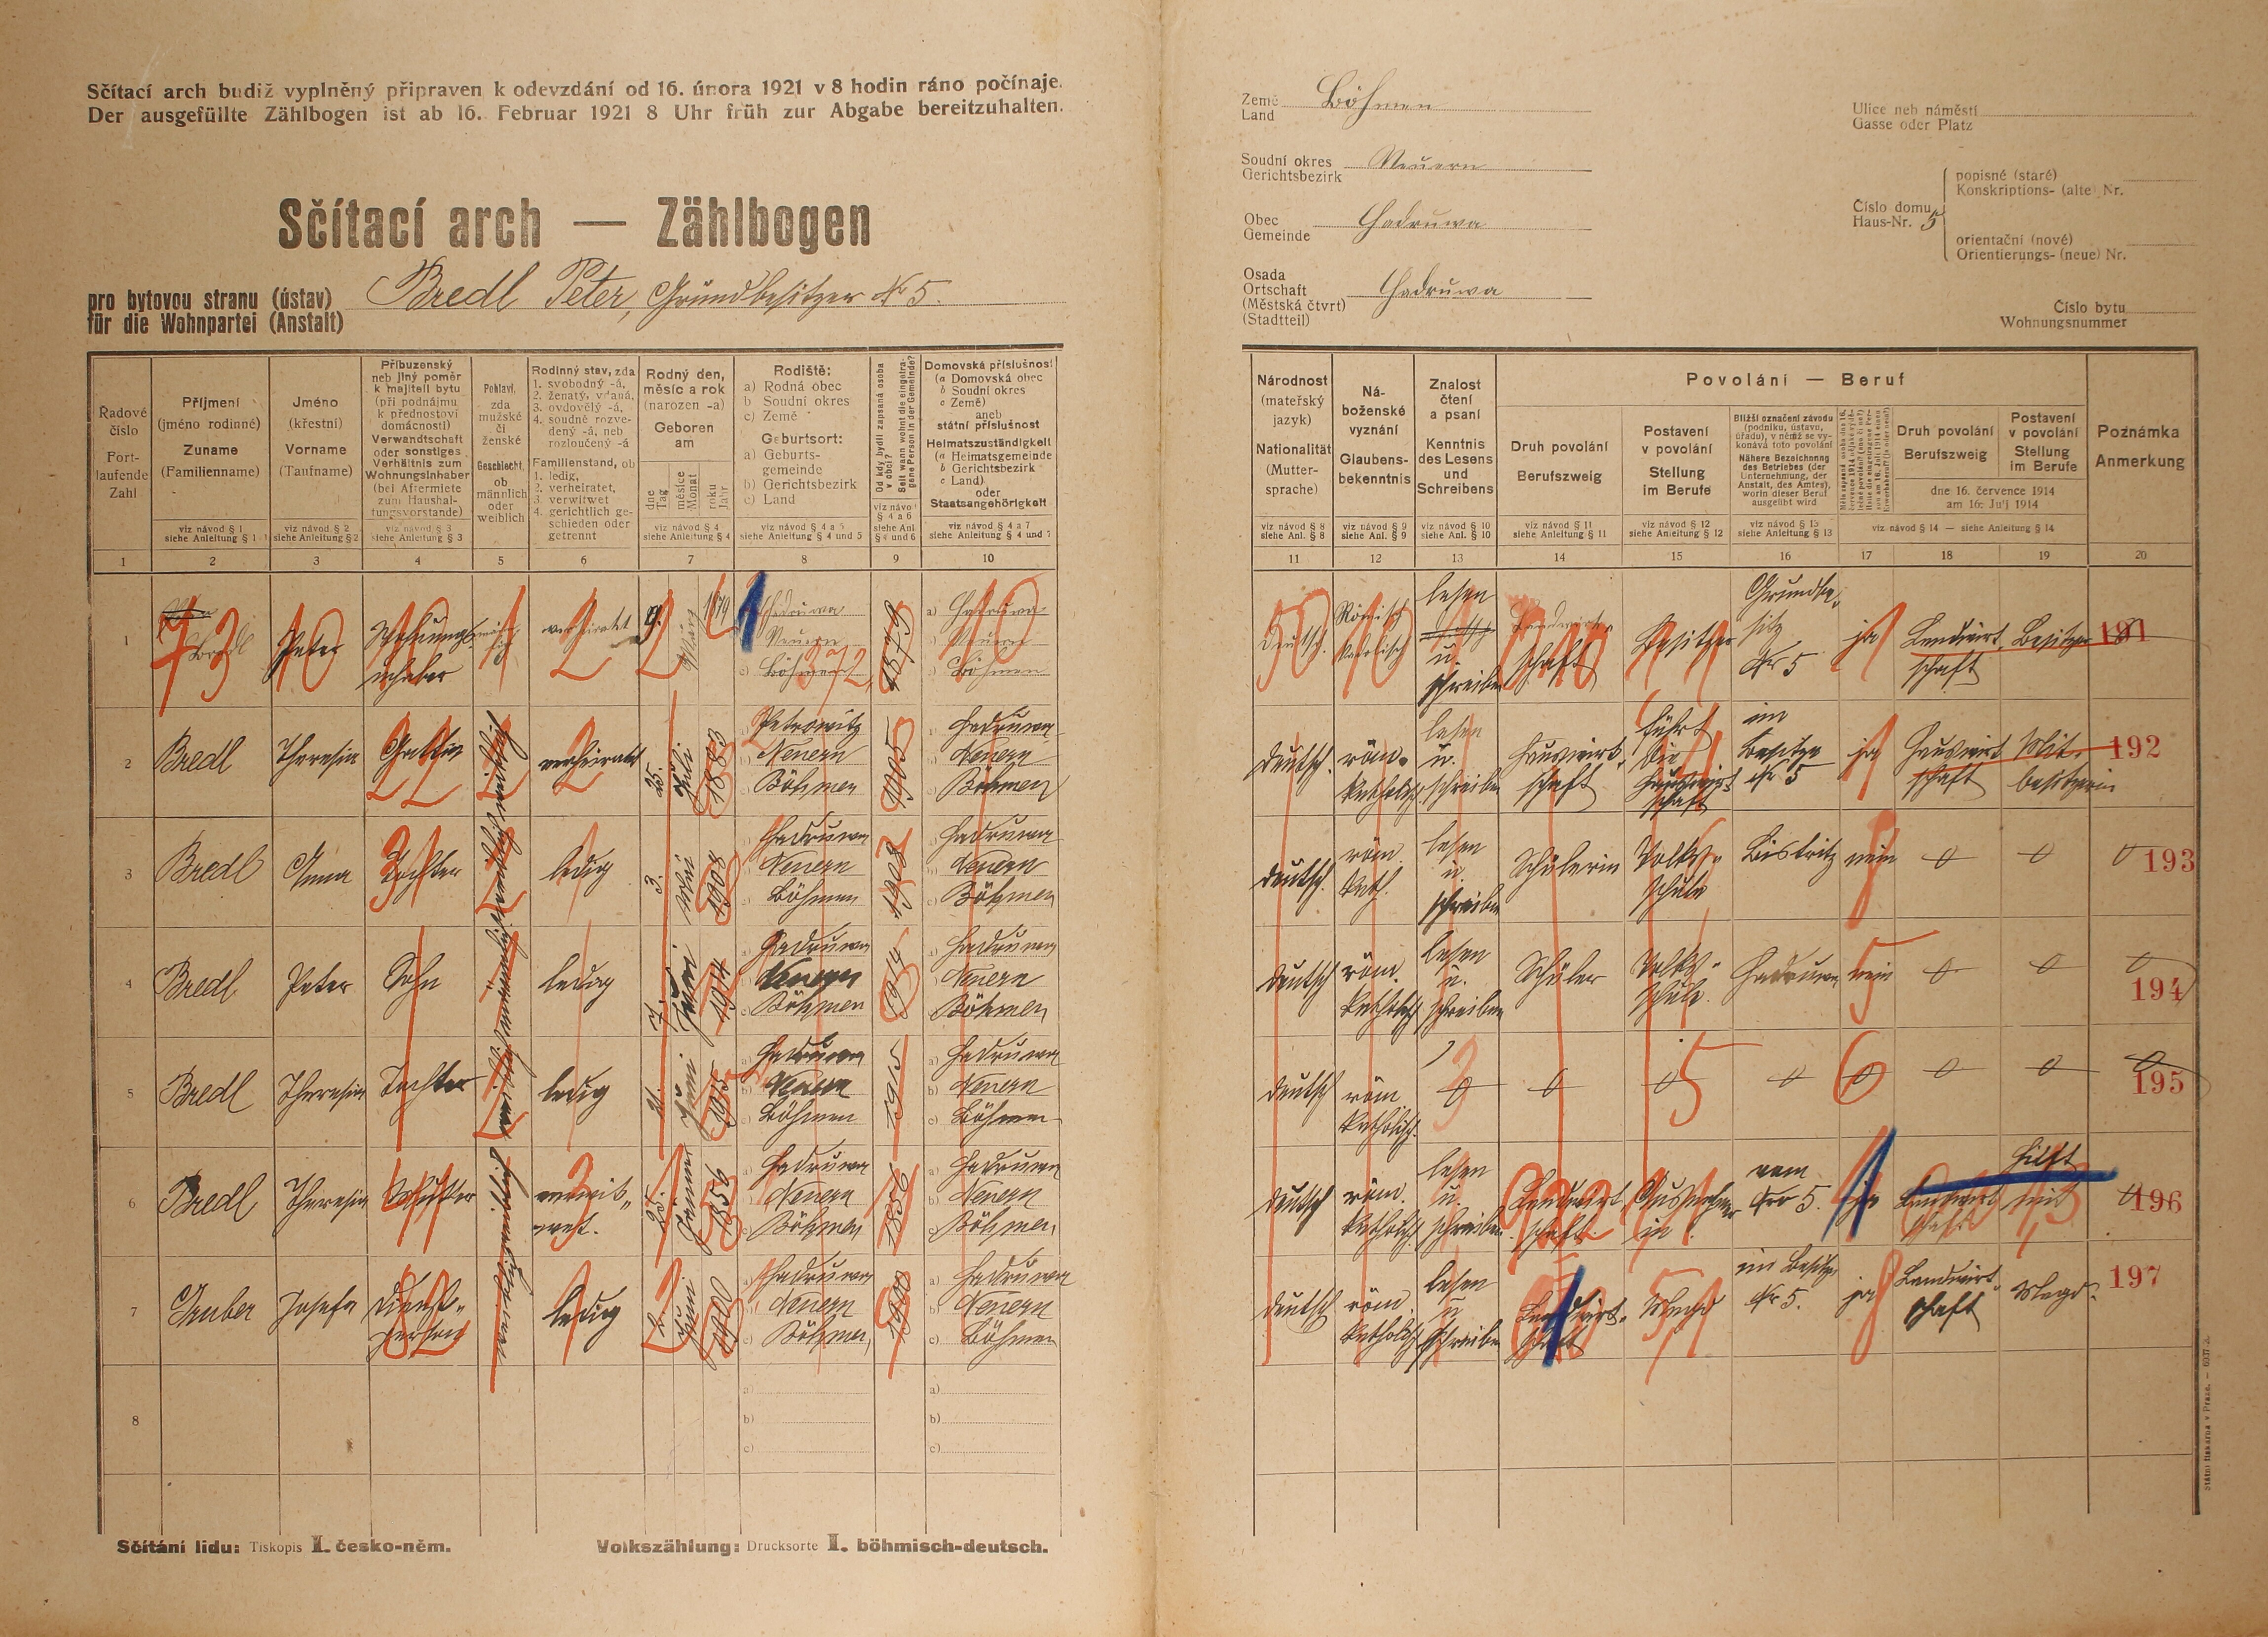 Sčítací arch budiž vyplněný připraven k odevzdání od 16. února 1921 v 8 hodin ráno počínaje.
Der ausgefüllte Zählbogen ist ab 16. Februar 1921 8 Uhr früh zur Abgabe bereitzuhalten.
Sčítací arch — Zählbogen
pro bytovou stranu (ústav)
für die Wohnpartei (Anstalt)
Bredl Peter, Grundbesitzer № 5.
Země
Land
Böhmen
Soudní okres
Gerichtsbezirk
Neuern
Obec
Gemeinde
Chadruwa
Osada
Ortschaft
(Městská čtvrt)
(Stadtteil)
Chadruwa
Ulice neb náměstí
Gasse oder Platz
Číslo domu
Haus-Nr. 5
popisné (staré)
Konskriptions- (alte) Nr.
orientační (nové)
Orientierungs- (neue) Nr.
Číslo bytu
Wohnungsnummer
Řadové číslo
Fortlaufende Zahl
1
Příjmení
(jméno rodinné)
Zuname
(Familienname)
viz návod § 1
siehe Anleitung § 1
2
Jméno
(křestní)
Vorname
(Taufname)
viz návod § 2
siehe Anleitung § 2
3
Příbuzenský
neb jiný poměr
k majiteli bytu
(při podnájmu
k přednostovi
domácnosti)
Verwandtschaft
oder sonstiges
Verhältnis zum
Wohnungsinhaber
(bei Aftermiete
zum Haushal-
tungsvorstande)
viz návod § 3
siehe Anleitung § 3
4
Pohlaví,
zda
mužské
či
ženské
Geschlecht,
ob
männlich
oder
weiblich
5
Rodinný stav, zda
1. svobodný -á,
2. ženatý, vdaná,
3. ovdovělý -á,
4. soudně rozve-
dený -á, neb
rozloučený -á
Familienstand, ob
1. ledig,
2. verheiratet,
3. verwitwet
4. gerichtlich ge-
schieden oder
getrennt
6
Rodný den,
měsíc a rok
(narozen -a)
Geboren
am
dne
Tag
měsíce
Monat
roku
Jahr
viz návod § 4
siehe Anleitung § 4
7
Rodiště:
a) Rodná obec
b) Soudní okres
c) Země
Geburtsort:
a) Geburts-
gemeinde
b) Gerichtsbezirk
c) Land
viz návod § 4 a 5
siehe Anleitung § 4 und 5
8
Od kdy bydlí zapsaná osoba v obci?
Seit wann wohnt die eingetragene Person in der Gemeinde?
viz návod
§ 4 a 6
siehe Anl
§ 4 und 6
9
Domovská příslušnost
(a Domovská obec
b Soudní okres
c Země)
aneb
státní příslušnost
Heimatszuständigkeit
(a Heimatsgemeinde
b Gerichtsbezirk
c Land)
oder
Staatsangehörigkeit
viz návod § 4 a 7
siehe Anleitung § 4 und 7
10
Národnost
(mateřský
jazyk)
Nationalität
(Mutter-
sprache)
viz návod § 8
siehe Anl. § 8
11
Ná-
boženské
vyznání
Glaubens-
bekenntnis
viz návod § 9
siehe Anl. § 9
12
Znalost
čtení
a psaní
Kenntnis
des Lesens
und
Schreibens
viz návod § 10
siehe Anl. § 10
13
Povolání — Beruf
Druh povolání
Berufszweig
viz návod § 11
siehe Anleitung § 11
14
Postavení
v povolání
Stellung
im Berufe
viz návod § 12
siehe Anleitung § 12
15
Bližší označení závodu
(podniku, ústavu,
úřadu), v němž se vy-
konává toto povolání
Nähere Bezeichnung
des Betriebes (der
Unternehmung, der
Anstalt, des Amtes),
worin dieser Beruf
ausgeübt wird
viz návod § 13
siehe Anleitung § 13
16
17
Druh povolání
Berufszweig
Postavení
v povolání
Stellung
im Berufe
dne 16. července 1914
am 16. Juli 1914
viz návod § 14 — siehe Anleitung § 14
18
19
Poznámka
Anmerkung
20
1 Bredl Peter Wohnungsinhaber verheiratet 9. März 1879
Chadruwa
Neuern
Böhmen
1879
Chadruwa
Neuern
Böhmen
Deutsch. Römisch Katolisch lesen u. schreiben Landwirtschaft Besitzer Grundbesitz Nr 5 ja Landwirtschaft Besitzer 191
2 Bredl Theresia Gattin verheiratet 25. Juli 1883
Petrowitz
Neuern
Böhmen
1905
Hadruwa
Neuern
Böhmen
deutsch. röm. katholisch lesen u. schreiben Hauswirtschaft führt die Hauswirtschaft im Besitze Nr 5 ja Hauswirtschaft Mitbesitzerin 192
3 Bredl Anna Tochter ledig 3. Mai 1908
Hadruwa
Neuern
Böhmen
1908
Hadruwa
Neuern
Böhmen
deutsch. röm. kath. lesen u. schreiben Schülerin Volksschule Bistritz nein 0 0 0 193
4 Bredl Peter Sohn ledig 7. Juni 1914
Hadruwa
Neuern
Böhmen
1914
Hadruwa
Neuern
Böhmen
deutsch röm. katholisch lesen u. schreiben Schüler Volksschule. Hadruwa nein 0 0 0 194
5 Bredl Theresia Tochter ledig 21. Juni 1915
Hadruwa
Neuern
Böhmen
1915
Hadruwa
Neuern
Böhmen
deutsch röm. katholisch. 0 0 0 0 0 0 0 0 195
6 Bredl Theresia Mutter verwitwet. 25. Jänner 1856
Hadruwa
Neuern
Böhmen
1856
Hadruwa
Neuern
Böhmen
deutsch röm. katholisch. lesen u. schreiben Landwirtschaft Ausnehmerin vom Nro 5. ja Landwirtschaft hilft mit 0 196
7 Gruber Josefa Dienstperson ledig 2. Juni 1900
Hadruwa
Neuern
Böhmen
1900
Hadruwa
Neuern
Böhmen
deutsch röm. katholisch lesen u. schreiben Landwirtschaft Magd im Besitze Nr 5. ja Landwirtschaft Magd. 197
8
a)
b)
c)
a)
b)
c)
Sčítání lidu: Tiskopis I. česko-něm.
Volkszählung: Drucksorte I. böhmisch-deutsch.
Státní tiskárna v Praze.